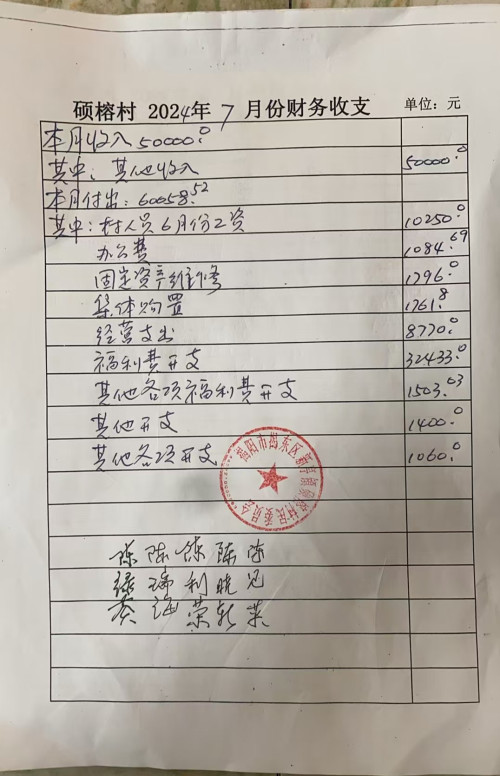 硕榕村 2024年 7 月份财务收支 单位：元
本月收入 50000.0
其中：其他收入 50000.0
本月付出：60058.52
其中：村人员6月份工资 10250.0
办公费 1084.69
固定资产维修 1796.0
集体购置 1761.8
经营支出 8770.0
福利费开支 32433.0
其他各项福利费开支 1503.03
其他开支 1400.0
其他各项开支 1060.0
揭阳市揭东区
村民委员会
陈 陈 陈
利 晓
海 荣